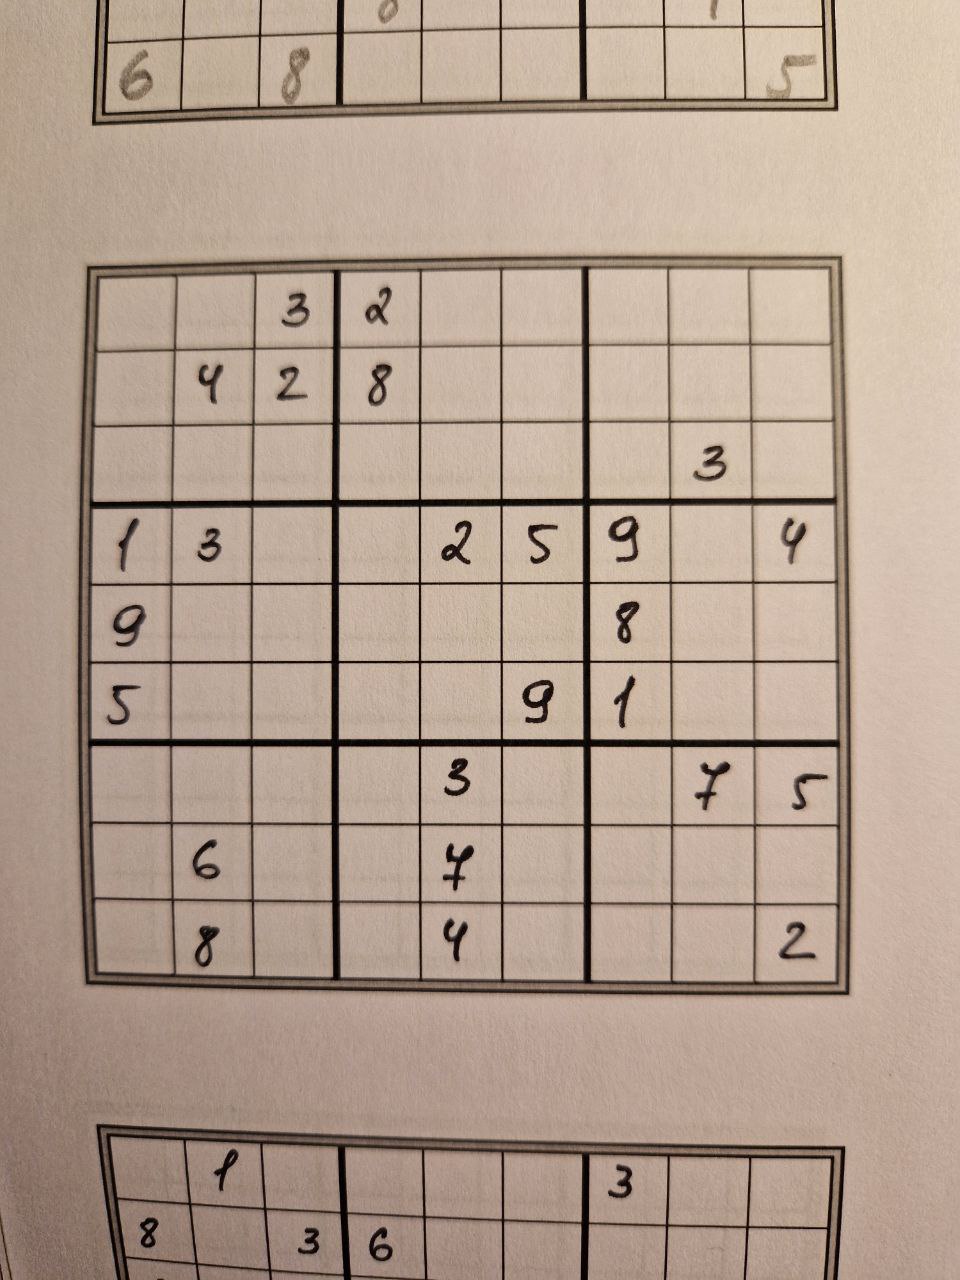 6 8 5
3 2
4 2 8
3
1 3 2 5 9 4
9 8
5 9 1
3 7 5
6 7
8 4 2
1 3
8 3 6